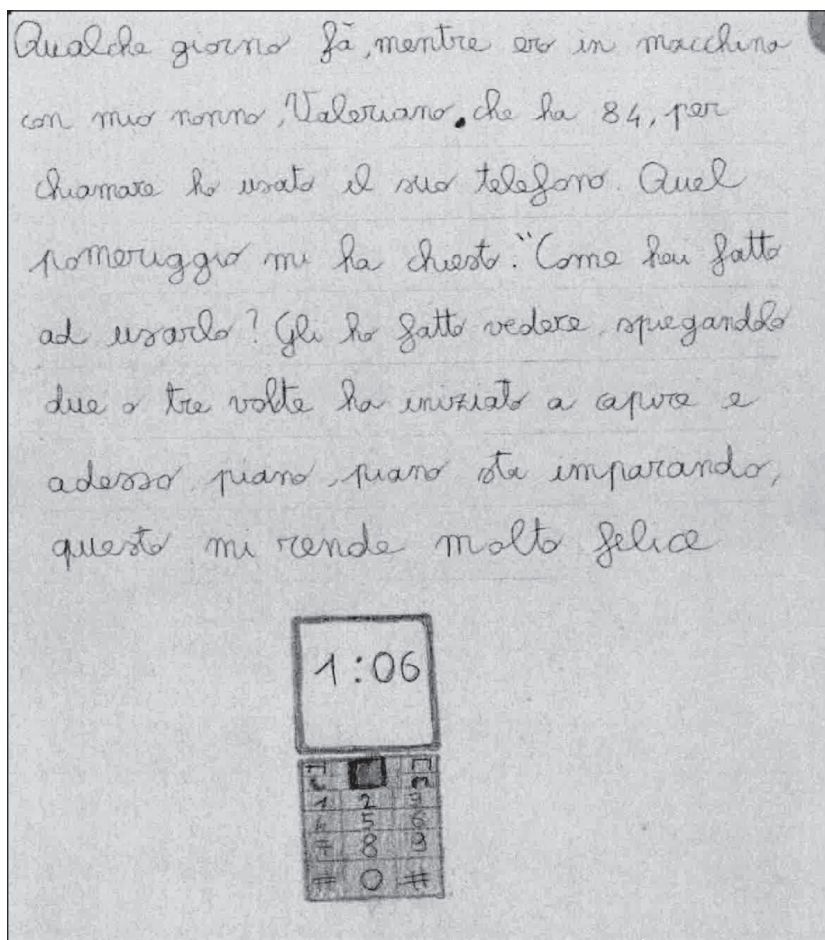 Qualche giorno fà, mentre ero in macchina
con mio nonno, Valeriano, che ha 84, per
chiamare ho usato il suo telefono. Quel
pomeriggio mi ha chiesto: "Come hai fatto
ad usarlo? Gli ho fatto vedere, spiegandolo
due o tre volte ha iniziato a capire e
adesso, piano, piano sta imparando,
questo mi rende molto felice
1:06
1 2 3
4 5 6
7 8 9
# 0 #